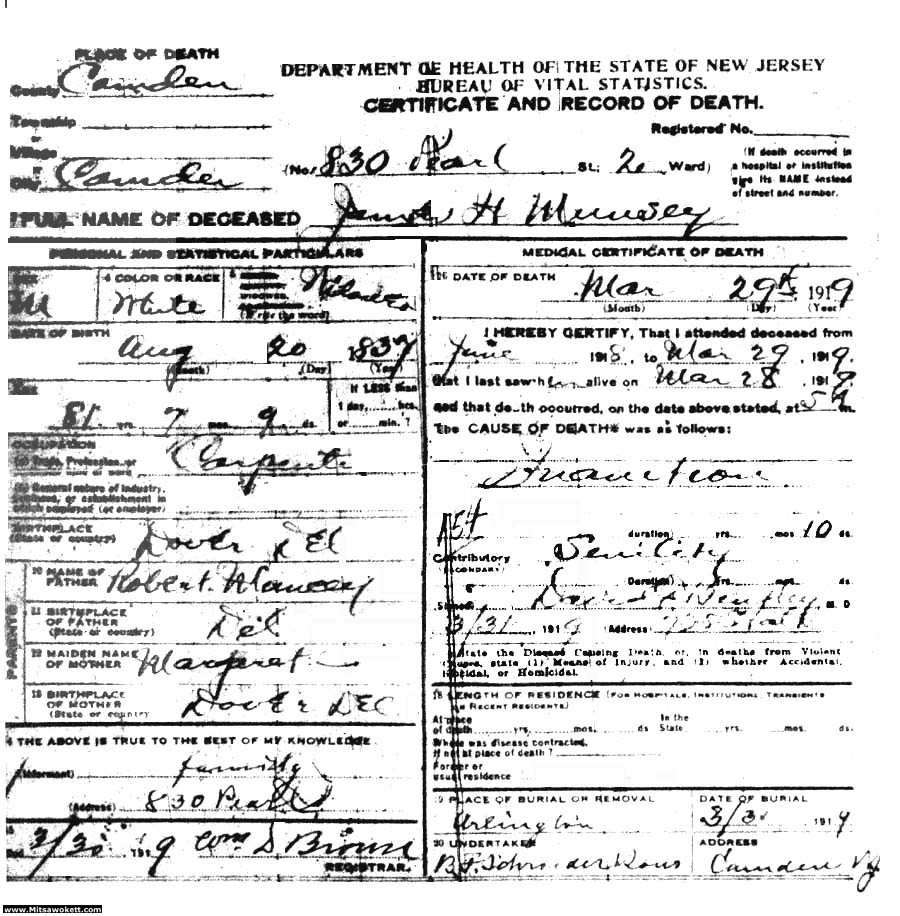 PLACE OF DEATH
County Camden
Township
or
Village
or
City Camden
DEPARTMENT OF HEALTH OF THE STATE OF NEW JERSEY
BUREAU OF VITAL STATISTICS.
CERTIFICATE AND RECORD OF DEATH.
Registered No.
(No. 830 Pearl St; 2d Ward)
(If death occurred in
a hospital or institution
give its NAME instead
of street and number.
FULL NAME OF DECEASED James H Munsey
PERSONAL AND STATISTICAL PARTICULARS
M
4 COLOR OR RACE
White
(Write the word)
DATE OF BIRTH
Aug 20 1837
(Month) (Day) (Year)
If LESS than
1 day, hrs.
or min. ?
81 yrs. 7 mos. 9 ds.
OCCUPATION
(a) Trade, Profession, or
Carpenter
(b) General nature of Industry,
business, or establishment in
which employed (or employer)
BIRTHPLACE
(State or country)
Dover Del
PARENTS
10 NAME OF
FATHER Robert Muncey
11 BIRTHPLACE
OF FATHER
(State or country)
Del
12 MAIDEN NAME
OF MOTHER Margaret
13 BIRTHPLACE
OF MOTHER
(State or country
Dover Del
14 THE ABOVE IS TRUE TO THE BEST OF MY KNOWLEDGE
(Informant) Family
(Address) 830 Pearl St
15
3/30 1919 Wm D Brown
REGISTRAR.
MEDICAL CERTIFICATE OF DEATH
16 DATE OF DEATH
Mar 29th 1919
(Month) (Day) (Year)
I HEREBY CERTIFY, That I attended deceased from
June 1918, to Mar 29, 1919.
that I last saw him alive on Mar 28, 1919
and that death occurred, on the date above stated, at 5 m.
The CAUSE OF DEATH* was as follows:
Inanition
duration) yrs. mos 10 ds.
Contributory Senility
(SECONDARY)
Duration) yrs. mos. ds.
(Signed) M. D
3/31 1919 (Address)
State the Disease Causing Death, or, in deaths from Violent
Causes, state (1) Means of Injury, and (2) whether Accidental,
Suicidal, or Homicidal.
18 LENGTH OF RESIDENCE (FOR HOSPITALS, INSTITUTIONS, TRANSIENTS
OR RECENT RESIDENTS)
At place In the
of death yrs. mos. ds State yrs. mos. ds.
Where was disease contracted,
if not at place of death ?
Former or
usual residence
19 PLACE OF BURIAL OR REMOVAL
Arlington
DATE OF BURIAL
3/31 1919
20 UNDERTAKER
B.F. Schroeder & Sons
ADDRESS
Camden NJ
www.Mitsawokett.com